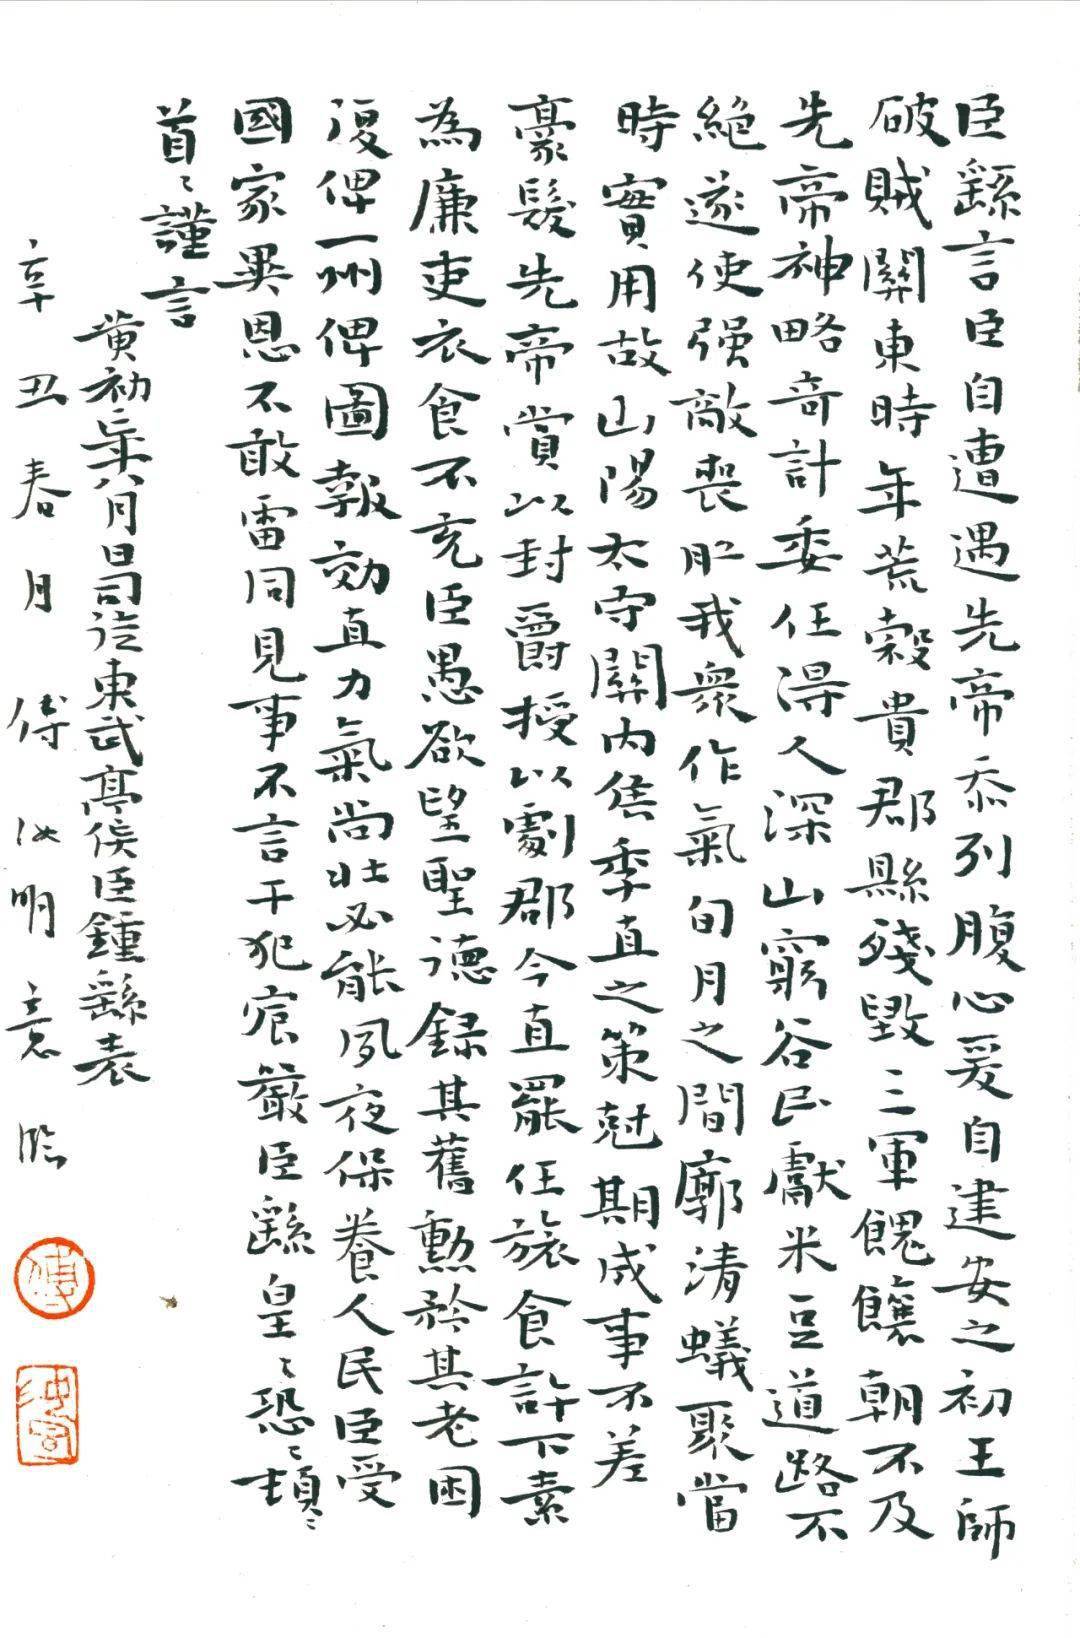 臣繇言臣自遭遇先帝忝列腹心爰自建安之初王師
破賊關東時年荒穀貴郡縣殘毀三軍餽饟朝不及
先帝神略奇計委任得人深山窮谷民獻米豆道路不
絶遂使强敵喪膽我衆作氣旬月之間廓清蟻聚當
時實用故山陽太守關内侯季直之策尅期成事不差
豪髮先帝賞以封爵授以劇郡今直罷任旅食許下素
為廉吏衣食不充臣愚欲望聖德録其舊勳矜其老困
復俾一州俾圖報効直力氣尚壯必能夙夜保養人民臣受
國家異恩不敢雷同見事不言干犯宸嚴臣繇皇〻恐〻頓〻
首〻謹言
黄初二年八月日司徒東武亭侯臣鍾繇表
辛丑春月傅汝明意臨
傅